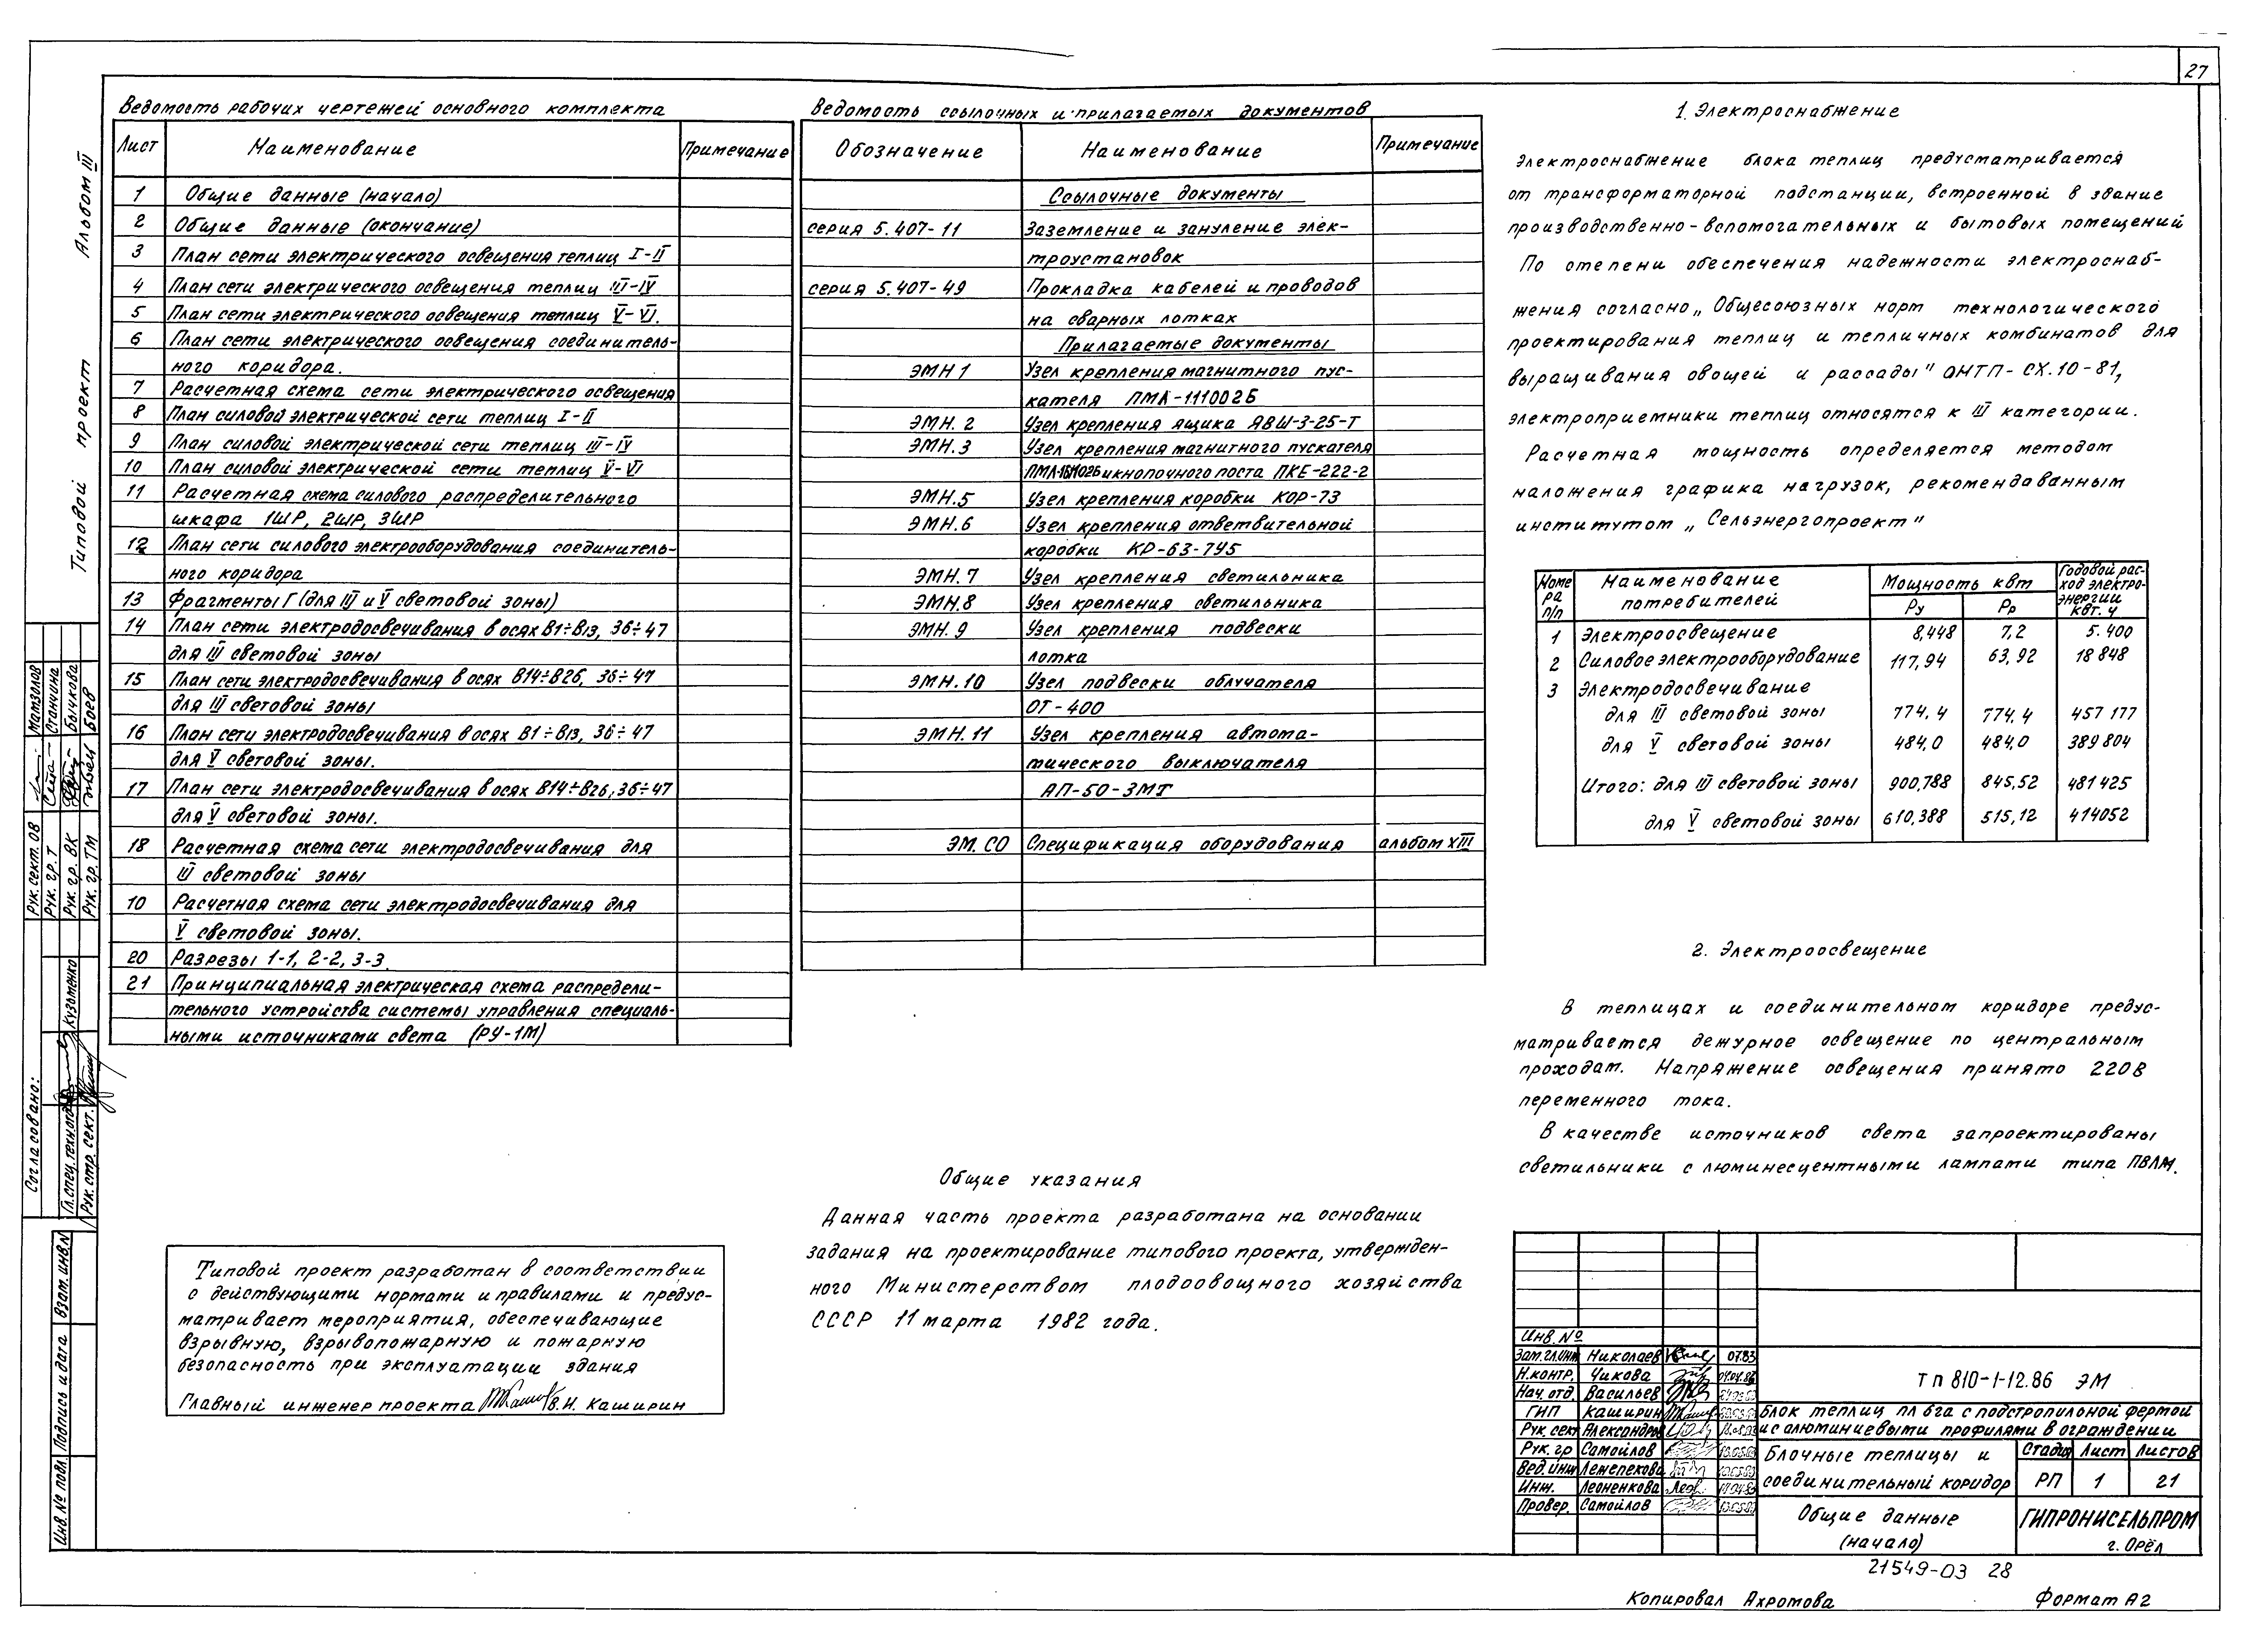 27
Альбом III
Типовой проект
Ведомость рабочих чертежей основного комплекта
Лист Наименование Примечание
1 Общие данные (начало)
2 Общие данные (окончание)
3 План сети электрического освещения теплиц I-II
4 План сети электрического освещения теплиц III-IV
5 План сети электрического освещения теплиц V-VI.
6 План сети электрического освещения соединитель-
ного коридора.
7 Расчетная схема сети электрического освещения
8 План силовой электрической сети теплиц I-II
9 План силовой электрической сети теплиц III-IV
10 План силовой электрической сети теплиц V-VI
11 Расчетная схема силового распределительного
шкафа 1ШР, 2ШР, 3ШР
12 План сети силового электрооборудования соединитель-
ного коридора
13 Фрагменты Г (для III и V световой зоны)
14 План сети электродосвечивания в осях В1÷В13, 36÷47
для III световой зоны
15 План сети электродосвечивания в осях В14÷В26, 36÷47
для III световой зоны
16 План сети электродосвечивания в осях В1÷В13, 36÷47
для V световой зоны.
17 План сети электродосвечивания в осях В14÷В26, 36÷47
для V световой зоны.
18 Расчетная схема сети электродосвечивания для
III световой зоны
10 Расчетная схема сети электродосвечивания для
V световой зоны.
20 Разрезы 1-1, 2-2, 3-3.
21 Принципиальная электрическая схема распредели-
тельного устройства системы управления специаль-
ными источниками света (РУ-1М)
Типовой проект разработан в соответствии
с действующими нормами и правилами и предус-
матривает мероприятия, обеспечивающие
взрывную, взрывопожарную и пожарную
безопасность при эксплуатации здания
Главный инженер проекта В.Н. Каширин
Ведомость ссылочных и прилагаемых документов
Обозначение Наименование Примечание
Ссылочные документы
серия 5.407-11 Заземление и зануление элек-
троустановок
серия 5.407-49 Прокладка кабелей и проводов
на сварных лотках
Прилагаемые документы
ЭМН 1 Узел крепления магнитного пус-
кателя ПМА-111002Б
ЭМН. 2 Узел крепления ящика ЯВШ-3-25-Т
ЭМН. 3 Узел крепления магнитного пускателя
и кнопочного поста ПКЕ-222-2
ЭМН.5 Узел крепления коробки КОР-73
ЭМН.6 Узел крепления ответвительной
коробки КР-63-7У5
ЭМН. 7 Узел крепления светильника
ЭМН.8 Узел крепления светильника
ЭМН. 9 Узел крепления подвески
лотка
ЭМН. 10 Узел подвески облучателя
ОТ-400
ЭМН. 11 Узел крепления автома-
тического выключателя
АП-50-3МТ
ЭМ. СО Спецификация оборудования альбом XIII
Общие указания
Данная часть проекта разработана на основании
задания на проектирование типового проекта, утвержден-
ного Министерством плодоовощного хозяйства
СССР 11 марта 1982 года.
1. Электроснабжение
Электроснабжение блока теплиц предусматривается
от трансформаторной подстанции, встроенной в здание
производственно-вспомогательных и бытовых помещений
По степени обеспечения надежности электроснаб-
жения согласно „Общесоюзных норм технологического
проектирования теплиц и тепличных комбинатов для
выращивания овощей и рассады" ОНТП-СХ.10-81,
электроприемники теплиц относятся к III категории.
Расчетная мощность определяется методом
наложения графика нагрузок, рекомендованным
институтом „Сельэнергопроект"
Номера п/п Наименование потребителей Мощность квт Годовой рас-ход электро-энергии квт. ч
Ру Рр
1 Электроосвещение 8,448 7,2 5.400
2 Силовое электрооборудование 117,94 63,92 18 848
3 Электродосвечивание
для III световой зоны 774,4 774,4 457 177
для V световой зоны 484,0 484,0 389 804
Итого: для III световой зоны 900,788 845,52 481 425
для V световой зоны 610,388 515,12 414052
2. Электроосвещение
В теплицах и соединительном коридоре предус-
матривается дежурное освещение по центральным
проходам. Напряжение освещения принято 220 В
переменного тока.
В качестве источников света запроектированы
светильники с люминесцентными лампами типа ПВЛМ.
Инв. №
Зам. гл. инж Николаев 07.83
Н.контр. Чикова 04.04.86
Нач. отд Васильев
ГИП Каширин
Рук. сект Александров
Рук. гр Самойлов
Вед. инж Лежепекова
Инж. Леоненкова
Провер. Самойлов
тп 810-1-12.86 ЭМ
Блок теплиц пл 6га с подстропильной фермой
и с алюминиевыми профилями в ограждении
Блочные теплицы и соединительный коридор
Стадия Лист Листов
РП 1 21
Общие данные (начало)
ГИПРОНИСЕЛЬПРОМ г. Орёл
21549-03 28
Копировал Ахромова Формат А2
Согласовано:
Рук. сект. ОВ Мамзолов
Рук. гр. Т Станчина
Рук. гр. ВК Бычкова
Рук. гр. ТМ Боев
Гл. спец. технолог Кузьменко
Рук. стр. сект.
Инв. № подл. Подпись и дата Взам. инв. N